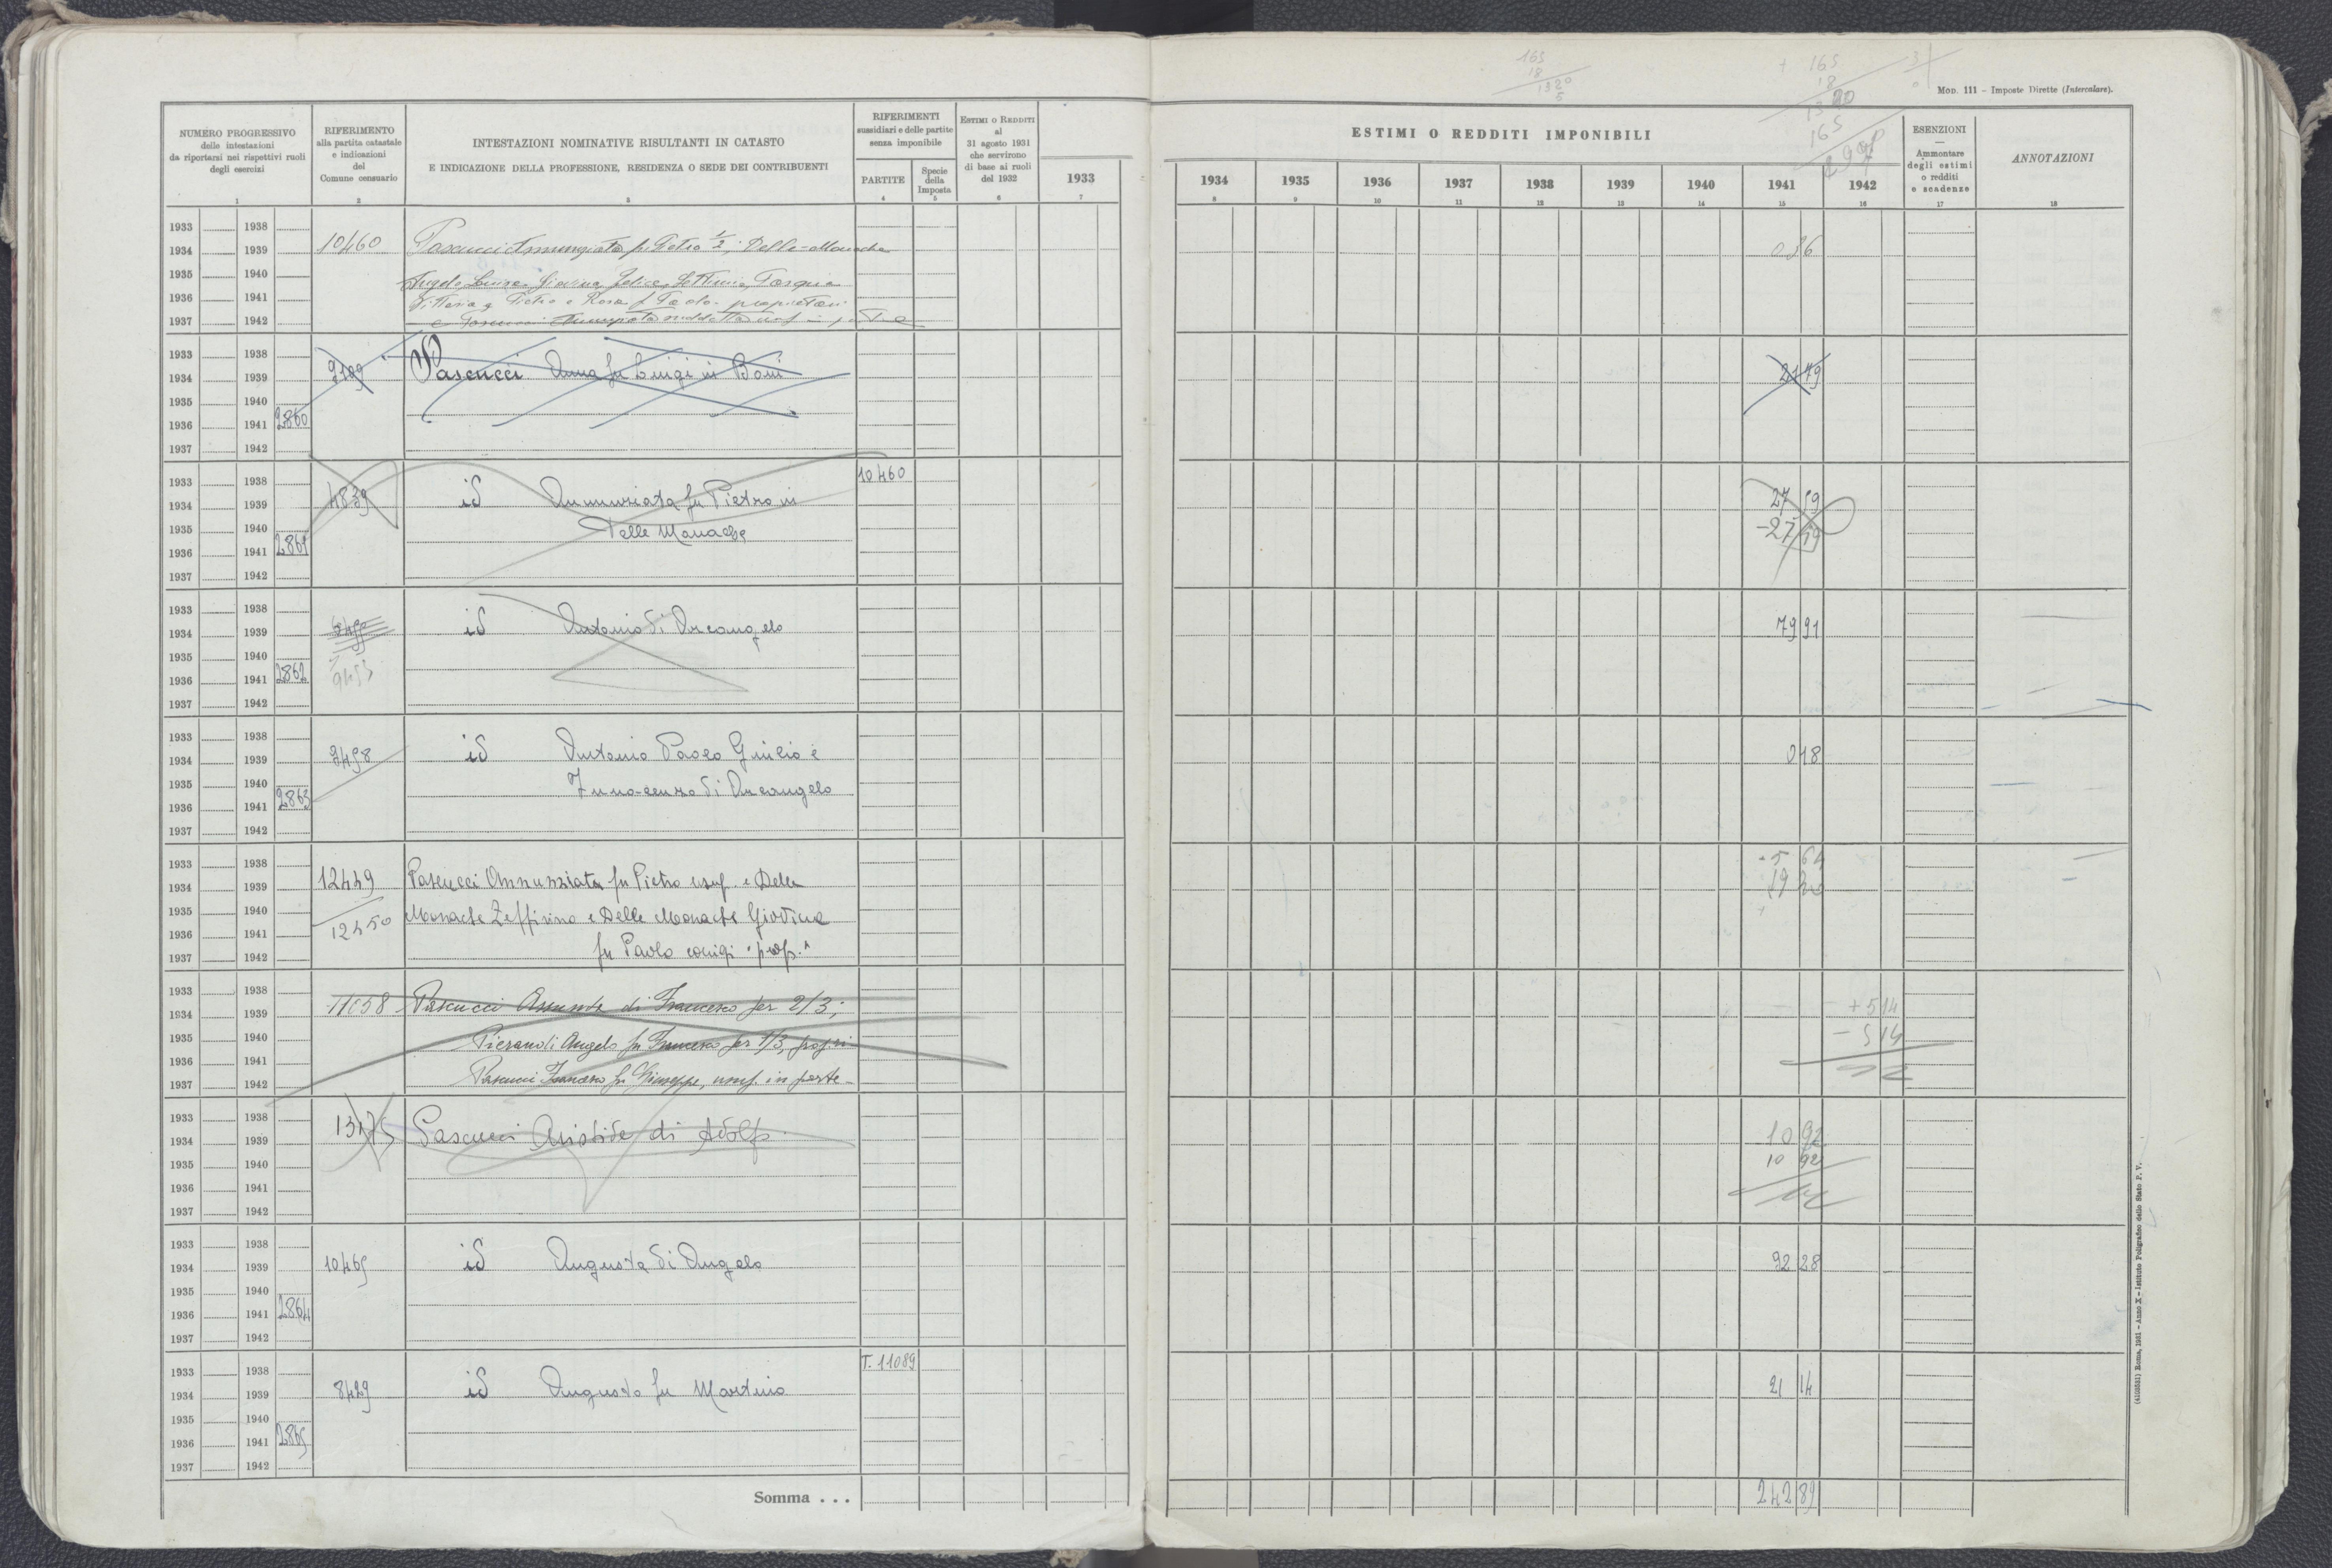 165
18
1320
5
+ 165
18
1320
165
3
0
MOD. 111 – Imposte Dirette (Intercalare).
NUMERO PROGRESSIVO
delle intestazioni
da riportarsi nei rispettivi ruoli
degli esercizi
RIFERIMENTO
alla partita catastale
e indicazioni
del
Comune censuario
INTESTAZIONI NOMINATIVE RISULTANTI IN CATASTO
E INDICAZIONE DELLA PROFESSIONE, RESIDENZA O SEDE DEI CONTRIBUENTI
RIFERIMENTI
sussidiari e delle partite
senza imponibile
PARTITE
Specie
della
Imposta
ESTIMI O REDDITI
al
31 agosto 1931
che servirono
di base ai ruoli
del 1932
ESTIMI O REDDITI IMPONIBILI
1933 1934 1935 1936 1937 1938 1939 1940 1941 1942
ESENZIONI
—
Ammontare
degli estimi
o redditi
e scadenze
ANNOTAZIONI
1 2 3 4 5 6 7 8 9 10 11 12 13 14 15 16 17 18
1933 1938
1934 1939 10460 Pascucci Annunziata fu Pietro 1/2; Delle-Monache 0 36
1935 1940 Angelo, Luisa, Giovina, Felice, Settimia, Pasqua
1936 1941 Vittoria q Pietro e Rosa f Paolo proprietari
1937 1942 e Pascucci Annunziata suddetta usuf in parte
1933 1938
1934 1939 9109 Pascucci Anna fu Luigi in Boni 21 79
1935 1940
1936 1941 2860
1937 1942
1933 1938 10460
1934 1939 4839 id Annunziata fu Pietro in 27 59
1935 1940 Delle Monache -27 59
1936 1941 2861
1937 1942
1933 1938
1934 1939 id Antonio di Arcangelo 79 91
1935 1940
1936 1941 2862 9453
1937 1942
1933 1938
1934 1939 9458 id Antonio Paolo Giulio e 0 18
1935 1940
1936 1941 2863 Innocenzo di Arcangelo
1937 1942
1933 1938 5 64
1934 1939 12449 Pascucci Annunziata fu Pietro usuf. e Delle 19
1935 1940 12450 Monache Zeffirino e Delle Monache Giovina
1936 1941
1937 1942 fu Paolo coniugi prop.
1933 1938
1934 1939 11058 Pascucci Assunta di Francesco per 2/3; +5 14
1935 1940 Pieranoli Angelo fu Francesco per 1/3, prop.ri - 5 14
1936 1941
1937 1942 Pascucci Francesco fu Giuseppe, usuf. in parte
1933 1938
1934 1939 13175 Pascucci Aristide di Adolfo 10 92
1935 1940 10 92
1936 1941
1937 1942
1933 1938
1934 1939 10465 id Augusta di Angelo 92 28
1935 1940
1936 1941 2864
1937 1942
1933 1938 T. 11089
1934 1939 8429 id Augusto fu Martino 21 14
1935 1940
1936 1941 2865
1937 1942
Somma . . . 242 89
(4103531) Roma, 1931 – Anno X – Istituto Poligrafico dello Stato P. V.